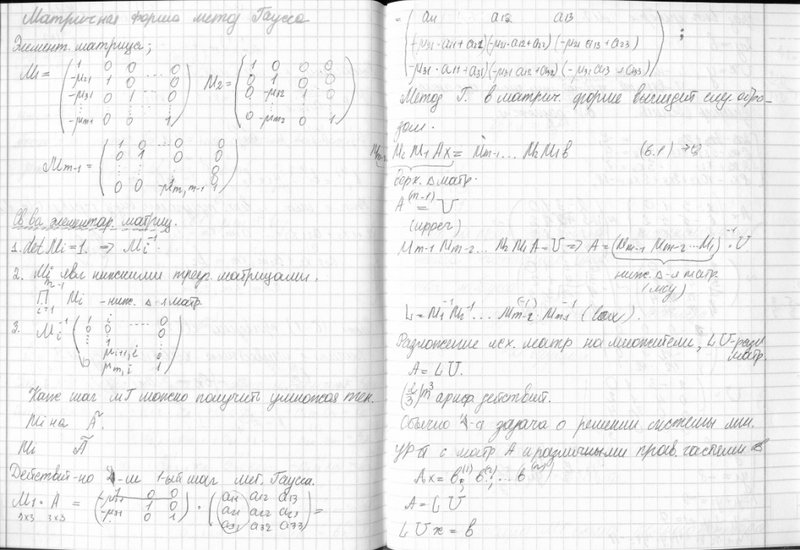 Матричная форма метод Гаусса
Элемент. матрица;
M₁ = ( 1 0 0 ... 0
-μ₂₁ 1 0 0
-μ₃₁ 0 1 0
-μm1 0 0 1 )
M₂ = ( 1 0 0 0
0 1 0 0
0 -μ₃₂ 1 0
0 -μm2 0 1 )
Mm-1 = ( 1 0 ... 0
0 1 0 0
0 0 -μm,m-1 1 )
Св-ва элементар. матриц.
1. det Mi = 1. ⇒ Mi⁻¹.
2. Mi явл нижними треуг. матрицами.
m-1
∏ Mi - ниж. Δ-я матр
i=1
3. Mi⁻¹ ( 1 i ... 0
0 0 0
: 1 0
μi+1,i 0
0 μm,i 1 )
Кажд шаг мГ можно получить умножая
Mi на Ã.
Mi
Действ-но 1-ый шаг мет. Гаусса.
M₁ · A = ( 1 0 0
-μ₂₁ 1 0
-μ₃₁ 0 1 ) · ( a₁₁ a₁₂ a₁₃
a₂₁ a₂₂ a₂₃
a₃₁ a₃₂ a₃₃ ) =
3x3 3x3
= ( a₁₁ a₁₂ a₁₃
(-μ₂₁·a₁₁+a₂₂) (-μ₂₁·a₁₂+a₂₂) (-μ₂₁ a₁₃+a₂₃)
(-μ₃₁·a₁₁+a₃₁) (-μ₃₁ a₁₂+a₃₂) (-μ₃₁ a₁₃+a₃₃) ) ;
Метод Г. в матрич. форме выглядит след. обра-
зом.
M₂ M₁ Ax = Mm-1 ... M₂ M₁ b
верх. Δ матр.
A⁽ᵐ⁻¹⁾ = U
Mm-1 Mm-2 ... M₂ M₁ A = U ⇒ A = (Mm-1 Mm-2 ... M₁)⁻¹ · U
ниж. Δ-я матр
L = M₁⁻¹ M₂⁻¹ ... Mm-2⁻¹ Mm-1⁻¹
Разложение исх. матр на множители, LU-разл
матр.
A = LU.
(2/3)m³ арифм. действий.
Обычно задача о решении системы лин.
ур-й с матр A и различными прав. частями b
Ax = b⁽¹⁾, b⁽²⁾, ... b
A = LU
LUx = b